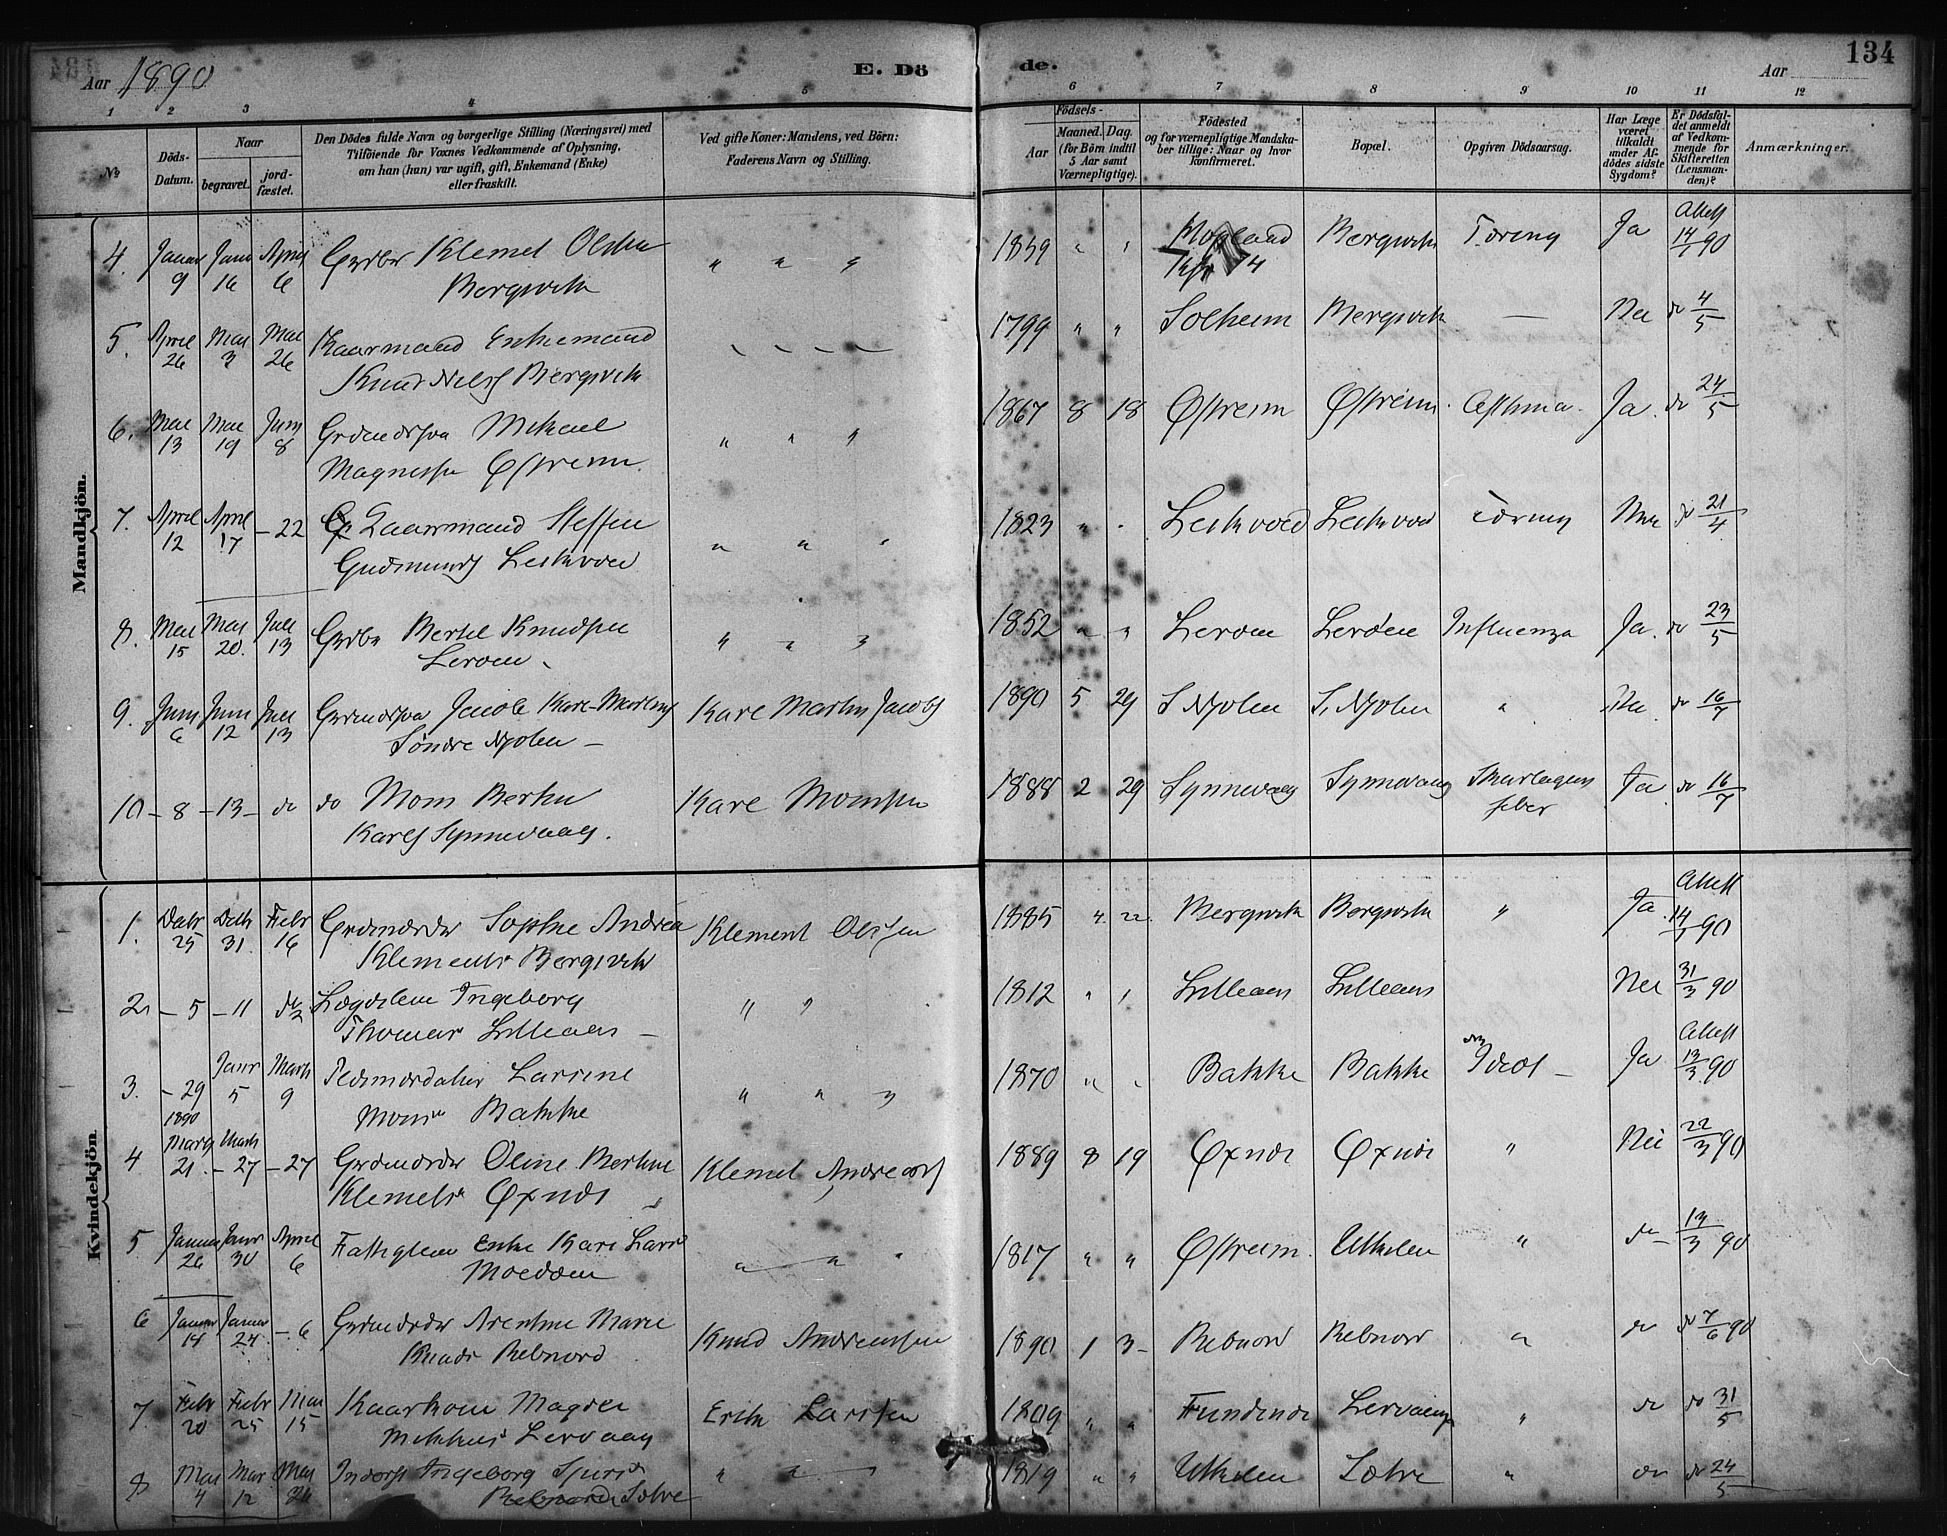 Aar 1890
E. Dö
de.
Aar
134
1 2 3 4 5 6 7 8 9 10 11 12
No
Döds-Datum.
Naar
begravet.
jord-fæstet.
Den Dödes fulde Navn og borgerlige Stilling (Næringsvei) med
Tilföiende for Voxnes Vedkommende af Oplysning,
om han (hun) var ugift, gift, Enkemand (Enke)
eller fraskilt.
Ved gifte Koner: Mandens, ved Börn:
Faderens Navn og Stilling.
Födsels-
Aar
Maaned. Dag.
(for Börn indtil
5 Aar samt
Værnepligtige).
Födested
og for værnepligtige Mandska-
ber tillige: Naar og hvor
konfirmeret.
Bopæl.
Opgiven Dödsaarsag.
Har Læge
været
tilkaldt
under Af-
dödes sidste
Sygdom?
Er Dödsfal-
det anmeldt
af Vedkom-
mende for
Skifteretten
(Lensman-
den)?
Anmærkninger.
Mandkjön.
4. Januar 9 Janr 16 April 6 Grdbr Klemet Olsen
Bergsvik
" " " 1839 " " Bergsvik Tæring Ja Attest 14/1 90
5. April 26 Mai 3 Mai 26 Kaarmand Enkemand
Knud Nilss Bergsvik
1799 " " Solheim Bergsvik — Nei do 4/5
6. Mai 13 Mai 19 Juni 8 Grdmdssøn Mikael
Magnesen Østreim
" " " 1867 8 18 Østreim Østreim Asthma Ja do 24/5
7. April 12 April 17 - 22 Kaarmand Steffen
Gudmunds Leikvold
" " " 1823 " " Leikvold Leikvold Tæring Nei do 21/4
8. Mai 15 Mai 20. Juli 13 Grdbr Bertel Knudsen
Lerøen
" " " 1852 " " Lerøen Lerøen Influenza Ja do 23/5
9. Juni 6 Juni 12 Juli 13 Grdmdssøn Jacob Karl-Martins
Søndre Njølen —
Karl Martin Jacobs 1890 5 29 S Njølen S. Njølen " Nei do 16/7
10 - 8 - 13 - do do Mons Bertin
Karls Synnevaag.
Karl Monsen 1888 2 29 Synnevaag Synnevaag Skarlagens
feber Ja do 16/7
Kvindekjön
1. Decbr 25 Decbr 31. Febr 16 Grdmdsdtr Sophie Andrea
Klements Bergsvik
Klement Olsen 1885 4 22. Bergsvik Bergsvik " Ja Attest 14/1 90
2 - 5 - 11 Lægdslem Ingeborg
Thomasdr Lilleaas —
" " 1812 " " Lilleaas Lilleaas Nei 31/3 90
3. - 29 Janr 5 Marts 9 Larsine
Monsdr Bakke
" " " 1870 " " Bakke Bakke Ja Attest 13/3 90
1890
4 Marts 21. Marts - 27 - 27 Grdmdsdtr Oline Bertine
Klemetsdr Øxnæs
Klemet Andreass 1889 8 19 Øxnæs Øxnæs " Nei 22/3 90
5 Januar 26 Janr 30 April 6 Fattiglem Enke Kari Larsdr
" " " 1817 " " Østreim Utkilen " do 13/3 90
6 Januar 14 Januar 24 - 6 Grdmdsdtr Arentine Marie
Knudsdr Rebnord
Knud Andreassen 1890 1 3 Rebnord Rebnord " do do 7/6 90
7 Febr 20 Febr 25 Mai 15 Kaarkone Magdel
Mikkelsdr Lervaag
Erik Larsen 1809 " " Lervaag " do do 31/5
8 Mai 4 Mai 12 Mai 26 Inderst Ingeborg Sjursdr
Rebnord Solve
" " " 1819 " " Utkilen " do do 24/5